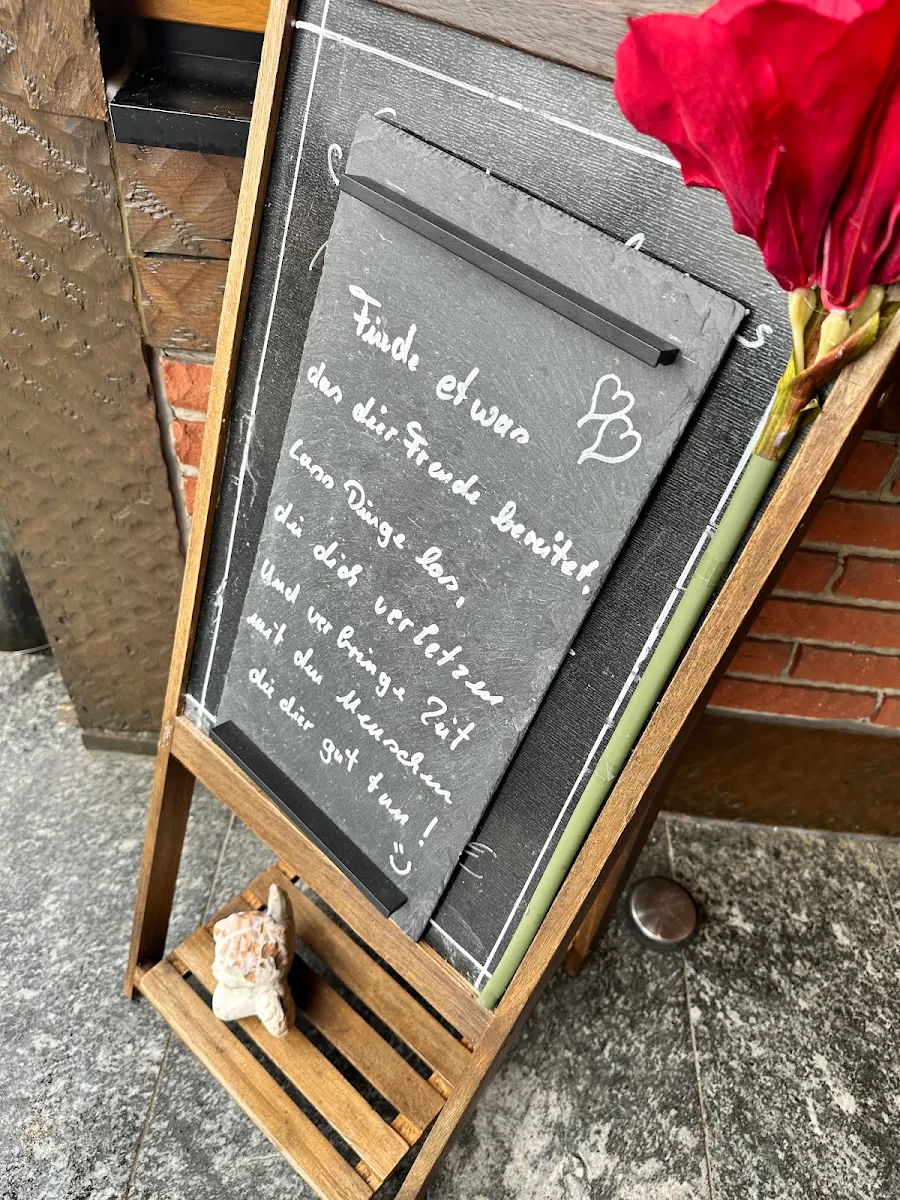 Finde etwas
das dir Freude bereitet,
Lass Dinge los,
die dich verletzen
Und verbringe Zeit
mit den Menschen
die dir gut tun!